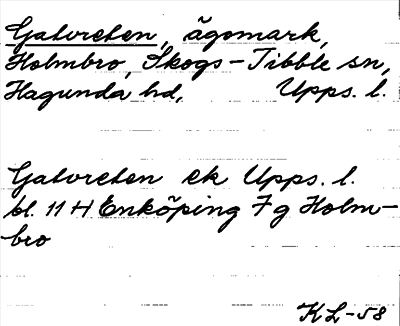 Gatvreten, ägomark,
Holmbro, Skogs-Tibble sn,
Hagunda hd, Upps. l.
Gatvreten ek Upps. l.
bl. 11 H Enköping 7 g Holm-
bro
KL-58